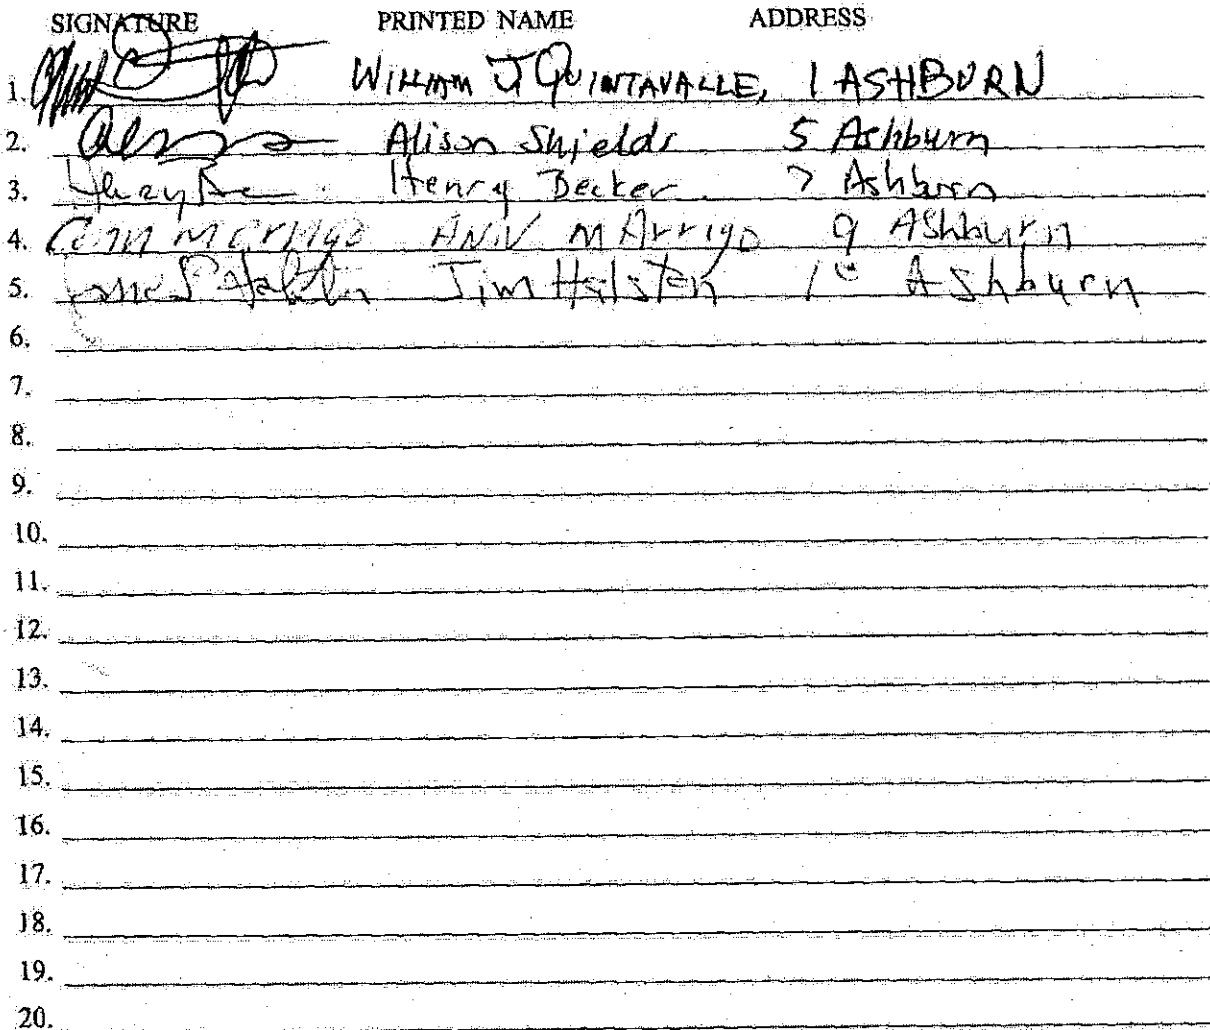 SIGNATURE PRINTED NAME ADDRESS
1. WILLIAM J QUINTAVALLE, 1 ASHBURN
2. Alison Shields 5 Ashburn
3. Henry Becker 7 Ashburn
4. Ann M Arrigo ANN M Arrigo 9 Ashburn
5. Jim Ashburn
6.
7.
8.
9.
10.
11.
12.
13.
14.
15.
16.
17.
18.
19.
20.